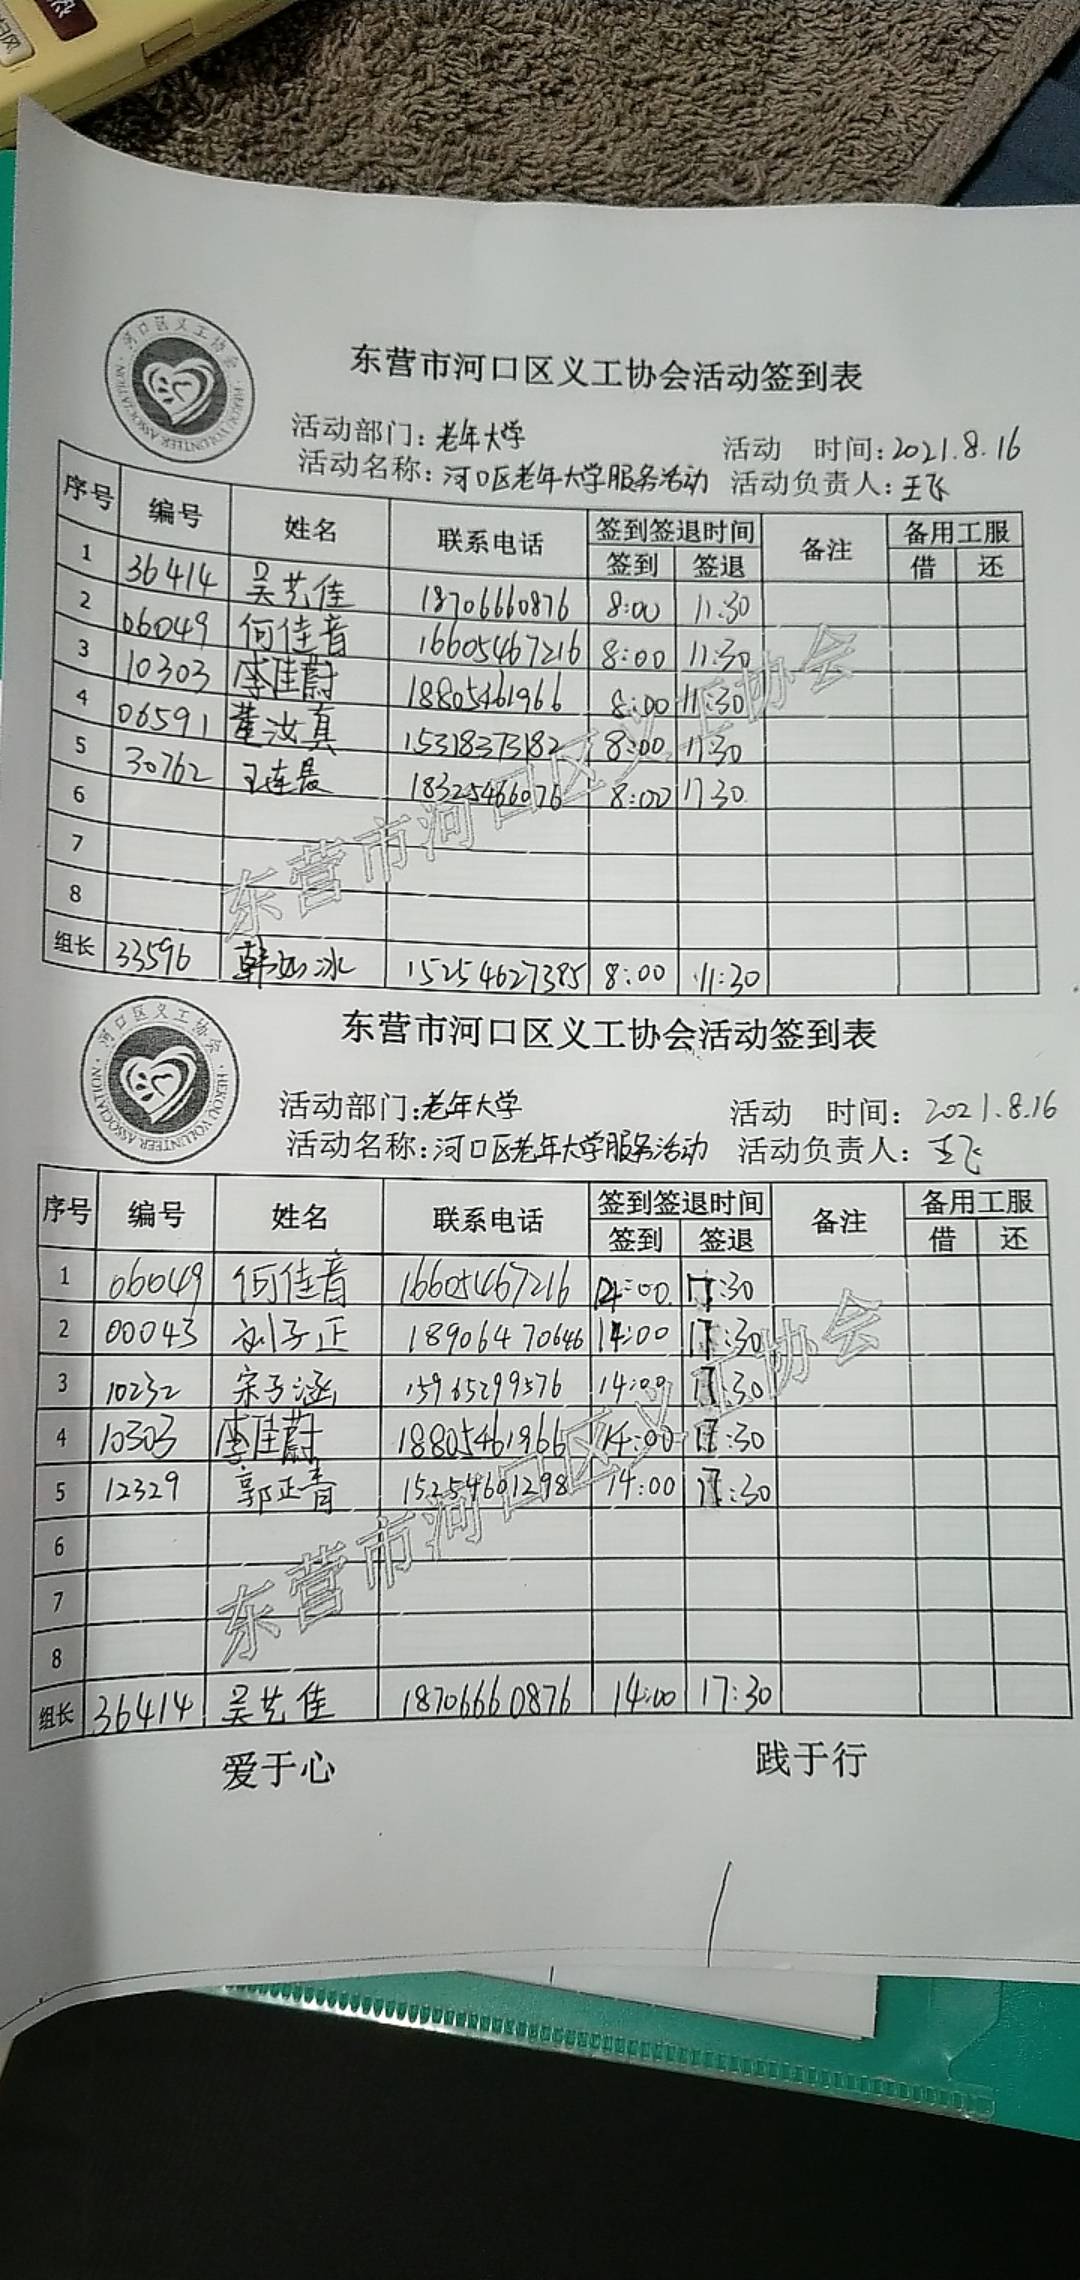 东营市河口区义工协会活动签到表
河口区义工协会
HEKOU VOLUNTEER ASSOCIATION
活动部门:老年大学 活动 时间:2021.8.16
活动名称:河口区老年大学服务活动 活动负责人:王飞
序号 编号 姓名 联系电话 签到签退时间 备注 备用工服
签到 签退 借 还
1 36414 吴艺佳 18706660876 8:00 11:30
2 06049 何佳音 16605467216 8:00 11:30
3 10303 李佳蔚 18805461966 8:00 11:30
4 06591 董汝真 15318373182 8:00 11:30
5 30762 王连晨 18325466076 8:00 11 30
6
7
8
组长 33596 韩 冰 15254627385 8:00 11:30
东营市河口区义工协会
东营市河口区义工协会活动签到表
河口区义工协会
HEKOU VOLUNTEER ASSOCIATION
活动部门:老年大学 活动 时间: 2021.8.16
活动名称:河口区老年大学服务活动 活动负责人:王飞
序号 编号 姓名 联系电话 签到签退时间 备注 备用工服
签到 签退 借 还
1 06049 何佳音 16605467216 14:00 17:30
2 00043 刘子正 18906470646 14:00 17:30
3 10232 宋子涵 15965299576 14:00 17:30
4 10303 李佳蔚 18805461966 14:00 17:30
5 12329 郭正青 15254601298 14:00 17:30
6
7
8
组长 36414 吴艺佳 18706660876 14:00 17:30
东营市河口区义工协会
爱于心 践于行